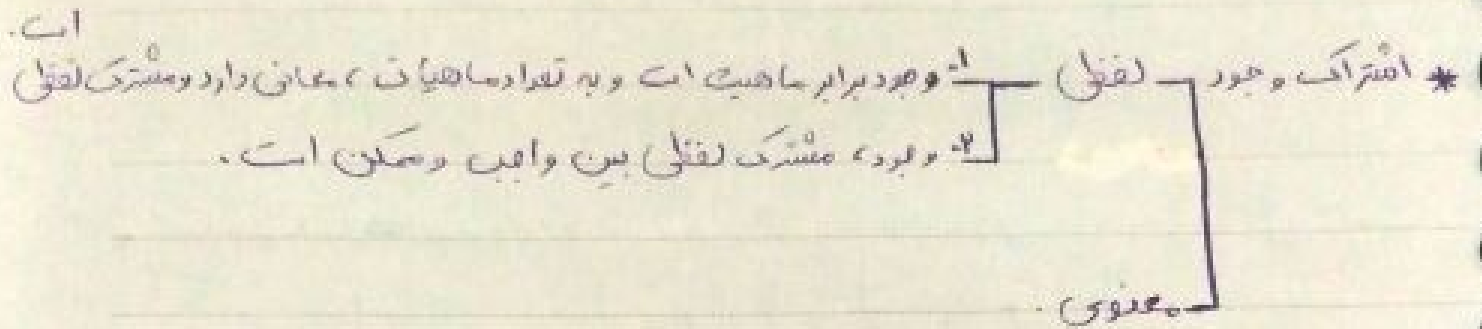 * اشتراک وجود لفظی ۱- وجود برابر ماهیت است و به تعداد ماهیات، معانی دارد و مشترک لفظی است.
۲- وجود، مشترک لفظی بین واجب و ممکن است.
معنوی.